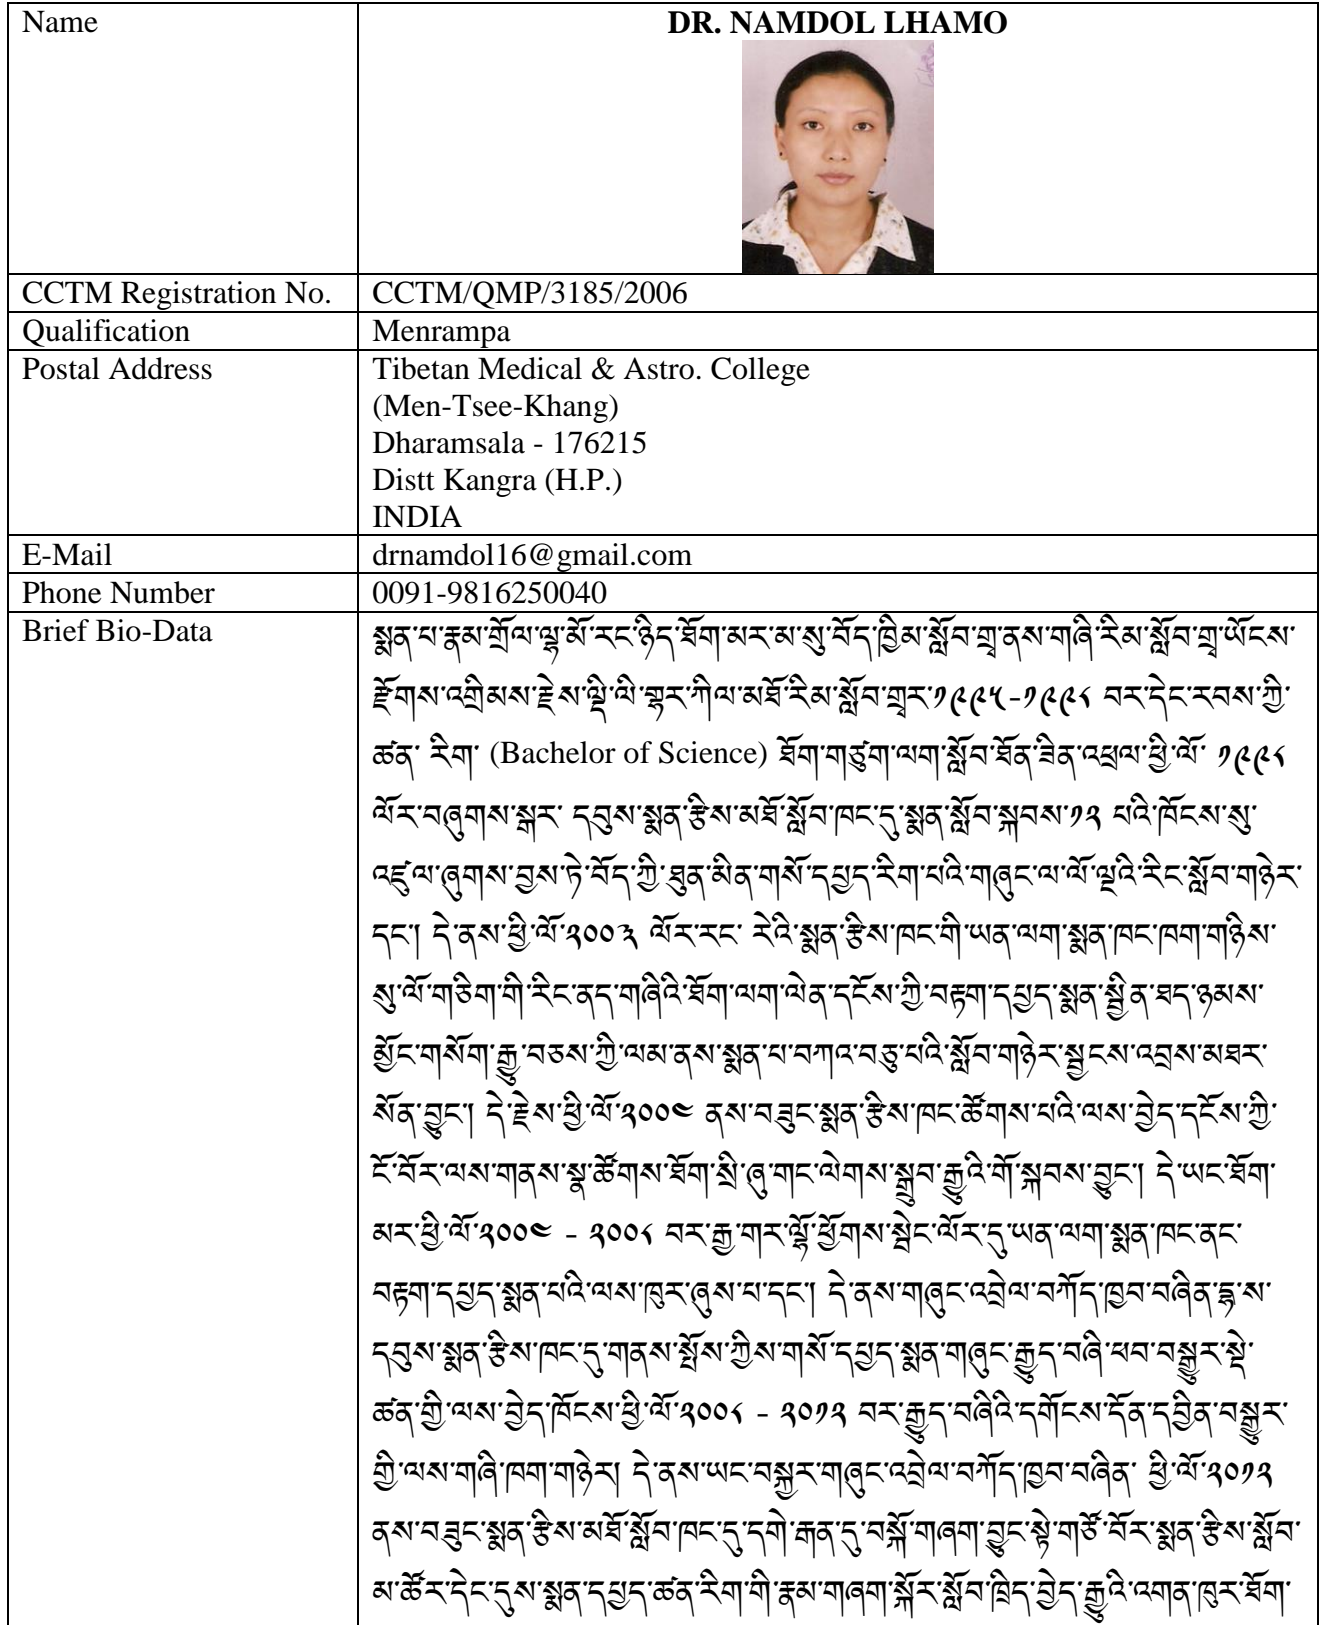 Name
DR. NAMDOL LHAMO
CCTM Registration No.
CCTM/QMP/3185/2006
Qualification
Menrampa
Postal Address
Tibetan Medical & Astro. College
(Men-Tsee-Khang)
Dharamsala - 176215
Distt Kangra (H.P.)
INDIA
E-Mail
drnamdol16@gmail.com
Phone Number
0091-9816250040
Brief Bio-Data
སྨན་པ་རྣམ་གྲོལ་ལྷ་མོ་རང་ཉིད་ཐོག་མར་མ་སུ་བོད་ཁྱིམ་སློབ་གྲྭ་ནས་གཞི་རིམ་སློབ་གྲྭ་ཡོངས་
རྫོགས་འགྲིམས་རྗེས་ལྡི་ལི་ཧྥར་ཀིལ་མཐོ་རིམ་སློབ་གྲྭར་༡༩༩༥-༡༩༩༨ བར་དེང་རབས་ཀྱི་
ཚན་ རིག་ (Bachelor of Science) ཐོག་གཙུག་ལག་སློབ་ཐོན་ཟིན་འཕྲལ་ཕྱི་ལོ་ ༡༩༩༨
ལོར་བཞུགས་སྒར་ དབུས་སྨན་རྩིས་མཐོ་སློབ་ཁང་དུ་སྨན་སློབ་སྐབས་༡༢ པའི་ཁོངས་སུ་
འཛུལ་ཞུགས་བྱས་ཏེ་བོད་ཀྱི་ཐུན་མིན་གསོ་དཔྱད་རིག་པའི་གཞུང་ལ་ལོ་ལྔའི་རིང་སློབ་གཉེར་
དང༌། དེ་ནས་ཕྱི་ལོ་༢༠༠༣ ལོར་རང་ རེའི་སྨན་རྩིས་ཁང་གི་ཡན་ལག་སྨན་ཁང་ཁག་གཉིས་
སུ་ལོ་གཅིག་གི་རིང་ནད་གཞིའི་ཐོག་ལག་ལེན་དངོས་ཀྱི་བརྟག་དཔྱད་སྨན་སྦྱིན་ཐད་ཉམས་
མྱོང་གསོག་རྒྱུ་བཅས་ཀྱི་ལམ་ནས་སྨན་པ་བཀའ་བཅུ་པའི་སློབ་གཉེར་སྦྱངས་འབྲས་མཐར་
སོན་བྱུང༌། དེ་རྗེས་ཕྱི་ལོ་༢༠༠༤ ནས་བཟུང་སྨན་རྩིས་ཁང་ཚོགས་པའི་ལས་བྱེད་དངོས་ཀྱི་
ངོ་བོར་ལས་གནས་སྣ་ཚོགས་ཐོག་སྲི་ཞུ་གང་ལེགས་སྒྲུབ་རྒྱུའི་གོ་སྐབས་བྱུང༌། དེ་ཡང་ཐོག་
མར་ཕྱི་ལོ་༢༠༠༤ - ༢༠༠༨ བར་རྒྱ་གར་ལྷོ་ཕྱོགས་སྦེང་ལོར་དུ་ཡན་ལག་སྨན་ཁང་ནང་
བརྟག་དཔྱད་སྨན་པའི་ལས་ཁུར་ཞུས་པ་དང༌། དེ་ནས་གཞུང་འབྲེལ་བཀོད་ཁྱབ་བཞིན་དྷ་ས་
དབུས་སྨན་རྩིས་ཁང་དུ་གནས་སྤོས་ཀྱིས་གསོ་དཔྱད་སྨན་གཞུང་རྒྱུད་བཞི་ཕབ་བསྒྱུར་སྡེ་
ཚན་གྱི་ལས་བྱེད་ཁོངས་ཕྱི་ལོ་༢༠༠༨ - ༢༠༡༢ བར་རྒྱུད་བཞིའི་དགོངས་དོན་དབྱིན་བསྒྱུར་
གྱི་ལས་གཞི་ཁག་གཉེར། དེ་ནས་ཡང་བསྐྱར་གཞུང་འབྲེལ་བཀོད་ཁྱབ་བཞིན་ ཕྱི་ལོ་༢༠༡༢
ནས་བཟུང་སྨན་རྩིས་མཐོ་སློབ་ཁང་དུ་དགེ་རྒན་དུ་བསྐོ་གཞག་བྱུང་སྟེ་གཙོ་བོར་སྨན་རྩིས་སློབ་
མ་ཚོར་དེང་དུས་སྨན་དཔྱད་ཚན་རིག་གི་རྣམ་གཞག་སྐོར་སློབ་ཁྲིད་བྱེད་རྒྱུའི་འགན་ཁུར་ཐོག་